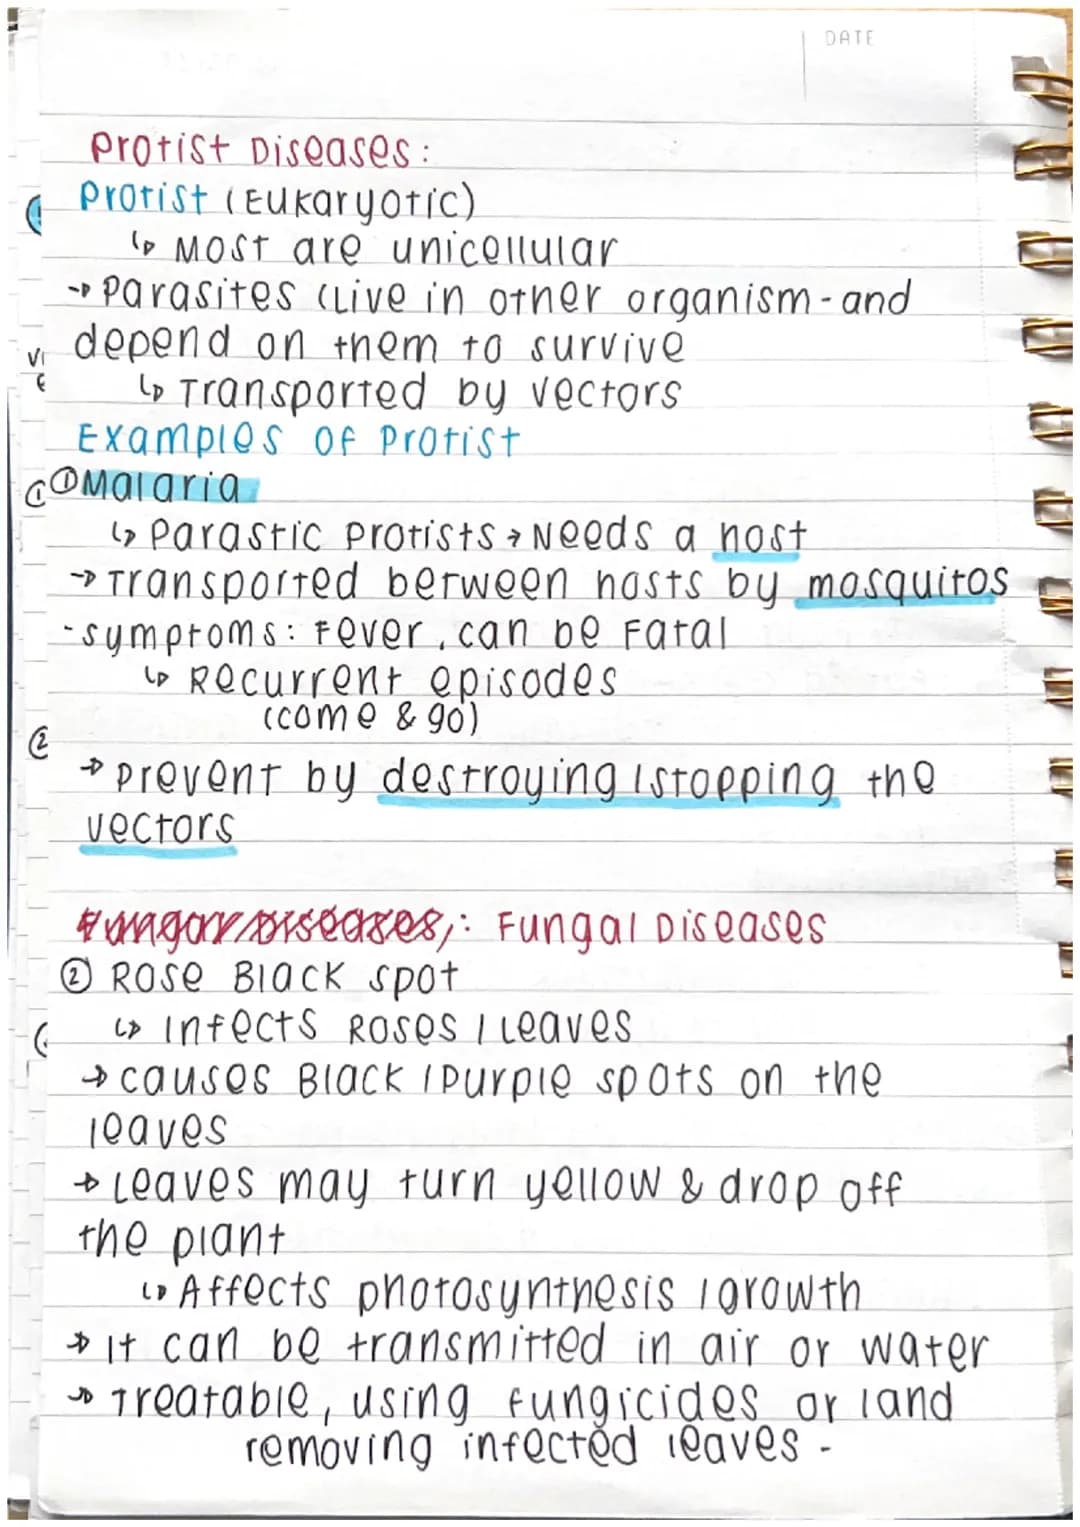 DATE
Protist Diseases:
Protist (Eukaryotic)
↳ Most are unicellular
→ Parasites (Live in other organism - and
depend on them to survive
↳ Transported by vectors
Examples of Protist
① Malaria
↳ Parastic Protists → Needs a host
→ Transported between hosts by mosquitos
- symptoms: Fever, can be Fatal
↳ Recurrent episodes
(come & go)
→ Prevent by destroying / stopping the
vectors
Fungal Diseases
② Rose Black spot
↳ Infects Roses / Leaves
→ causes Black / Purple spots on the
leaves
→ Leaves may turn yellow & drop off
the plant
↳ Affects photosynthesis / growth
→ It can be transmitted in air or water
→ Treatable, using fungicides or / and
removing infected leaves -